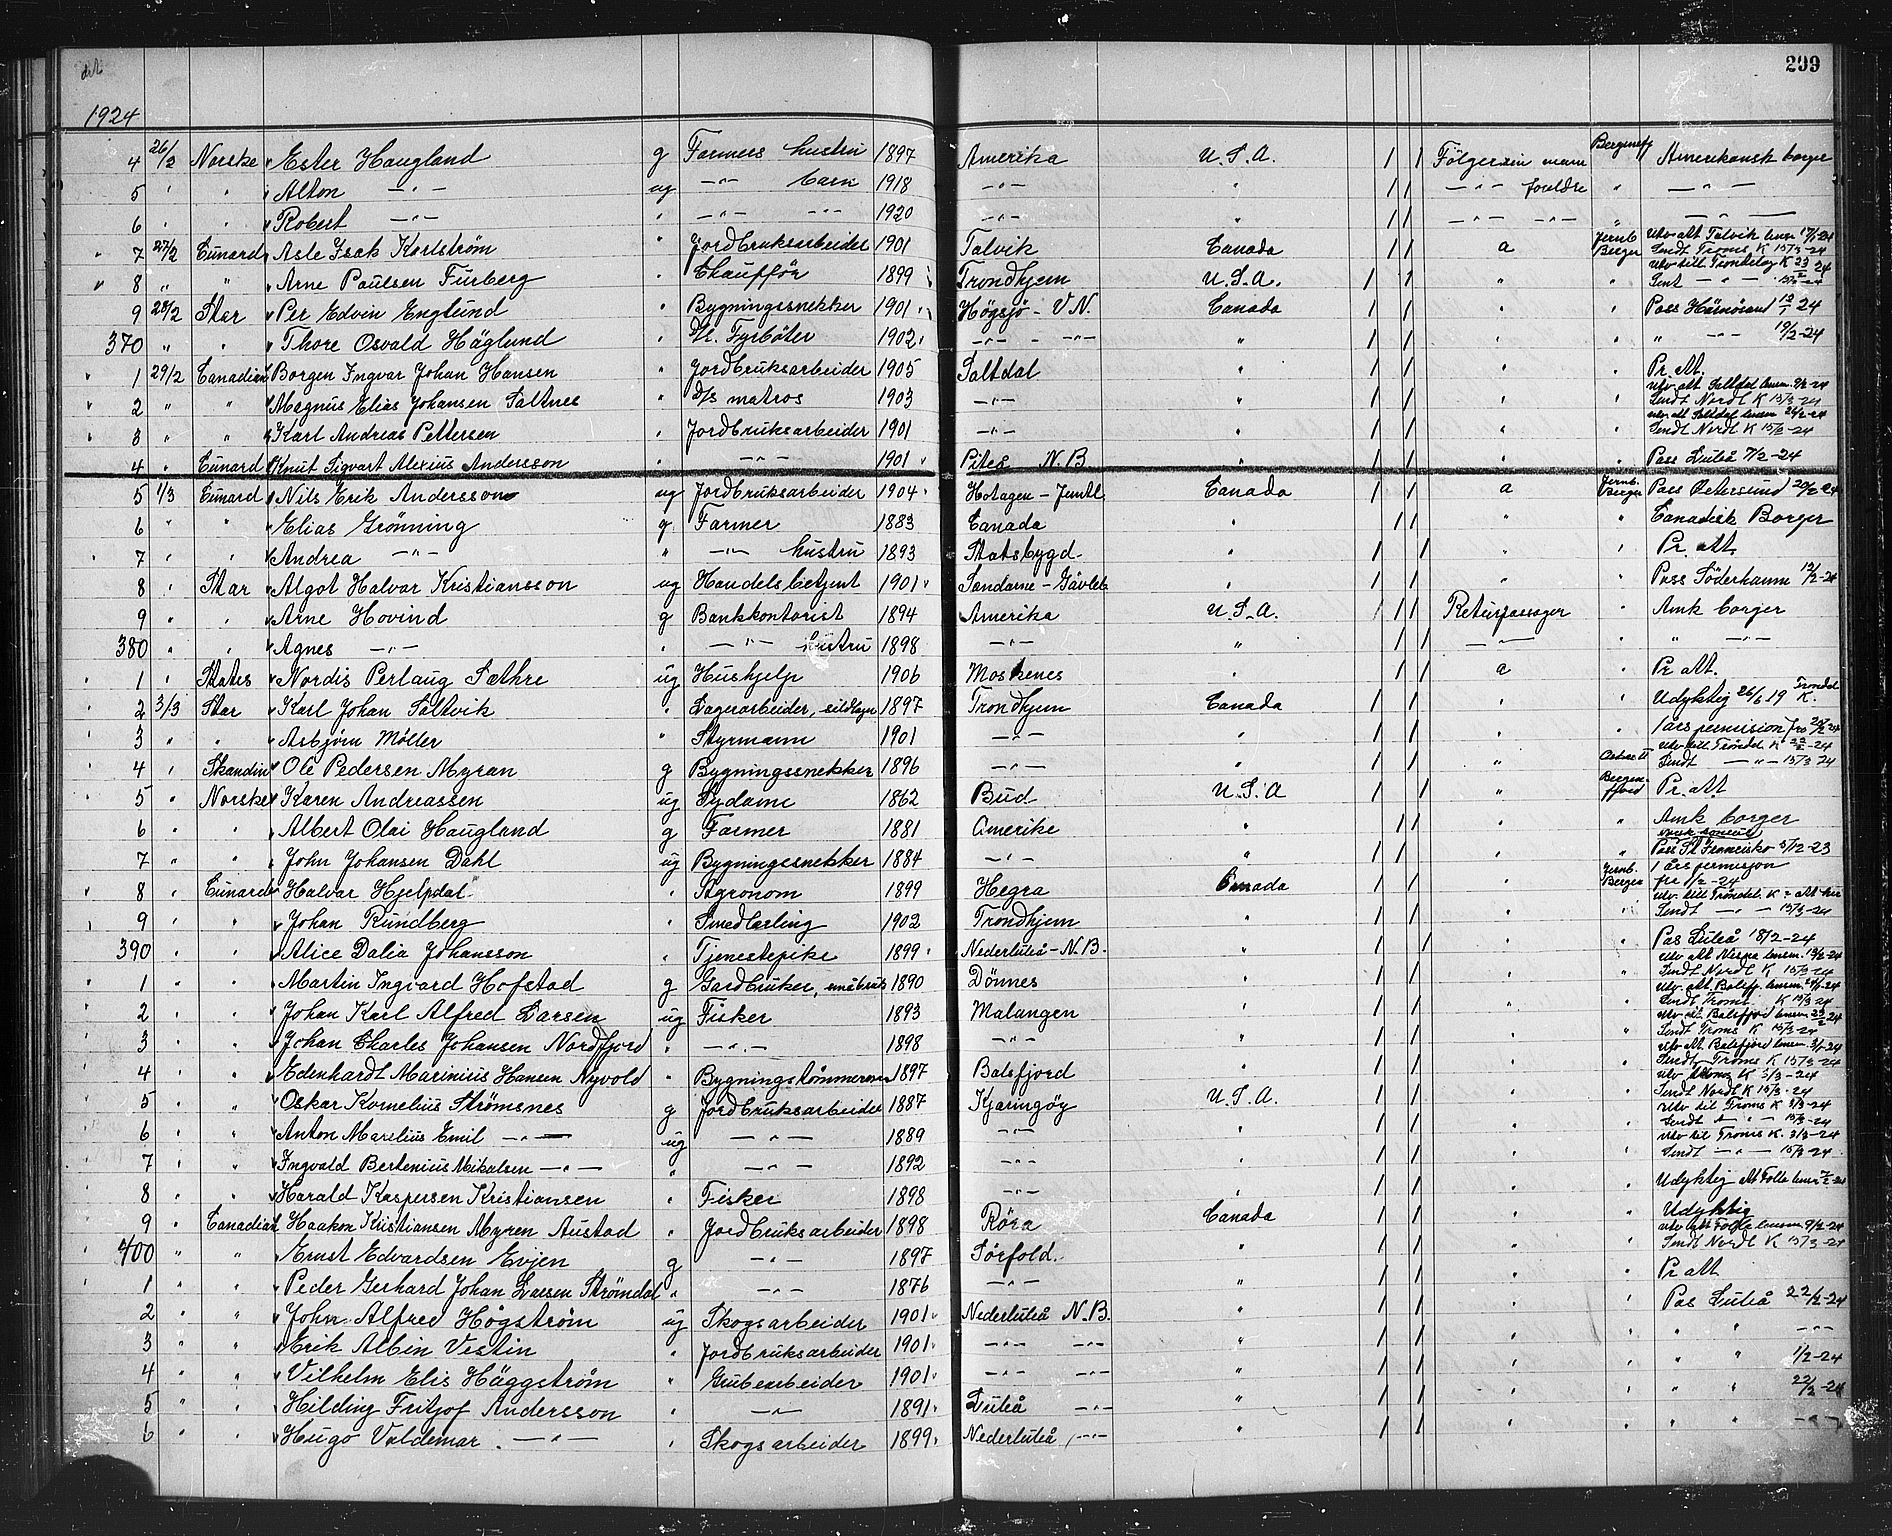 209
1924
4 26/2 Norske " Ester Haugland g Farmers hustru 1897 Amerika U.S.A. / / Følger sin mann Bergensfj Amerikansk borger
5 " " " Alton —"— ug —"— barn 1918 —"— " / / —"— foreldre " —"—
6 " " " Robert —"— " —"— —"— 1920 —"— " / / —"— —"— " —"—
7 27/2 Cunard " Asle Isak Karlstrøm " Jordbruksarbeider 1901 Talvik Canada / / a Jernb. Berger Utv. att Talvik lensm 17/1-24 Sendt Troms K 15/3-24
8 " " " Arne Paulsen Furberg " Chauffør 1899 Trondhjem U.S.A. / / " " Utv till Trondelag K 23/2 24 Sent —"— 15/3-24
9 28/2 Star " Per Edvin Englund " Bygningssnekker 1901 Högsjö - V.N. Canada / / " " Pass Härnösand 12/1 24
370 " " " Thore Osvald Häglund " Fyrbøter 1902 —"— - —"— " / / " " " —"— 19/2-24
1 29/2 Canadian " Borgen Ingvar Johan Hansen " Jordbruksarbeider 1905 Saltdal " / / " " Pr. att.
2 " " " Magnus Elias Johansen Saltnes " D/s matros 1903 —"— " / / " " Utv. att Saltdal lensm. 9/2-24 Sendt Nordl K 15/3-24
3 " " " Karl Andreas Pettersen " Jordbruksarbeider 1901 —"— " / / " " Utv att Saltdal lensm 26/2-24 Sendt Nordl K 15/3-24
4 " Cunard " Knut Sigvart Alexius Andersson " —"— 1901 Piteå N.B " / / " " Pass Luleå 7/2-24
5 1/3 Cunard " Nils Erik Andersson ug Jordbruksarbeider 1904 Hotagen - Jemtl. Canada / / a Jernb. Berger Pass Østersund 20/2 24
6 " " " Elias Grønning g Farmer 1883 Canada " / / " " Canadisk Borger
7 " " " Andrea —"— " —"— hustru 1893 Statsbygd " / / " Pr. att
8 " Star " Algot Halvar Kristiansson ug Handelsbetjent 1901 Sandarne - Gävleb " / / " Pass Söderhamn 12/2-24
9 " " " Arne Hovind g Bankkontorist 1894 Amerika U.S.A. / / Returpassager " Amk borger
380 " " " Agnes —"— " —"— hustru 1898 —"— " / / —"— " —"—
1 " States " Nordis Perlaug Sæthre ug Hushjelp 1906 Moskenes " / / a " Pr. att.
2 3/3 Star " Karl Johan Saltvik " Lagerarbeider, sildlager 1897 Trondhjem Canada / / " " Udyktig 26/6 19 Trondel K.
3 " " " Asbjørn Møller " Styrmann 1901 —"— " / / " " 1 års permision fra 28/2-24
4 " Skandin " Ole Pedersen Myran g Bygningssnekker 1896 —"— " / / " Utv. till Trøndel K 22/2-24 Sendt —"— 15/3 24
5 " Norske " Karen Andreassen ug Sydame 1862 Bud U.S.A / / " Bergensfjord Pr. att
6 " " " Albert Olai Haugland g Farmer 1881 Amerika " / / " " Amk borger
7 " " " John Johansen Dahl ug Bygningssnekker 1884 —"— " / / " " Pass St Francisko 3/12-23
8 " Cunard " Halvar Hjelpdal " Agronom 1899 Hegra Canada / / " Jernb. Berger 1 års permisjon fra 1/2-24
9 " " " Johan Rundberg " Smedlærling 1902 Trondhjem " / / " " Utv. till Trøndel. K Sendt —"— 15/3-24
390 " " " Alice Dalia Johansson " Tjenestepike 1899 Nederluleå - N.B. " / / " " Pas Luleå 18/2-24
1 " " " Martin Ingvard Hofstad g Gardbruker, småbruk 1890 Dönnes " / / " " Utv att Nesna lensm. 19/2-24 Sendt Nordl K 15/3-24
2 " " " Johan Karl Alfred Larsen ug Fisker 1893 Malangen " / / " " Utv. att. Balsfj. lensm. 24 Sendt Troms K 15/3-24
3 " " " Johan Charles Johansen Nordfjord " —"— 1898 —"— " / / " " Utv att Balsfjord lensm 23/2 24 Sendt Troms K 15/3-24
4 " " " Edenhardt Marinius Hansen Nyvold " Bygningstømmermann 1897 Balsfjord " / / " " Utv att Balsfjord lensm. 3/1-24 Sendt Troms K 15/3-24
5 " " " Oskar Kornelius Strømsnes g Jordbruksarbeider 1887 Kjæringøy U.S.A. / / " " Utv Troms K 3/3-24 Sendt Nordl K 15/3-24
6 " " " Anton Marelius Emil —"— ug —"— 1889 —"— " / / " " Utv til Troms K 3/3-24 Sendt —"— 15/3-24
7 " " " Ingvald Bertenius Mikalsen —"— " —"— 1892 —"— " / / " " Utv til Troms K. 3/3-24 Sendt —"— 15/3-24
8 " " " Harald Kaspersen Kristiansen " Fisker 1898 —"— " / / " " Udyktig att Folla lensm 2/2-24
9 " Canadian " Haakon Kristiansen Myren Austad " Jordbruksarbeider 1898 Röra Canada / / " " Udyktig
400 " " " Ernst Edvardsen Evjen g —"— 1897 Sörfold. " / / " " Utv att Folla lensm 9/2-24 Sendt Nordl K 15/3-24
1 " " " Peder Gerhard Johan Larsen Strømdal " —"— 1876 —"— " / / " " Pr att
2 " " " John Alfred Högström ug Skogsarbeider 1901 Nederluleå N.B. " / / " " Pas Luleå 22/2-24
3 " " " Erik Albin Vestin " Jordbruksarbeider 1901 —"— —"— " / / " " " " —"—
4 " " " Vilhelm Elis Häggström " Grubearbeider 1901 —"— —"— " / / " " " " 1/2-24
5 " " " Hilding Fritjof Andersson " —"— 1891 Luleå —"— " / / " " " " 22/2-24
6 " " " Hugo Valdemar —"— " Skogsarbeider 1899 Nederluleå —"— " / / " " " " —"—